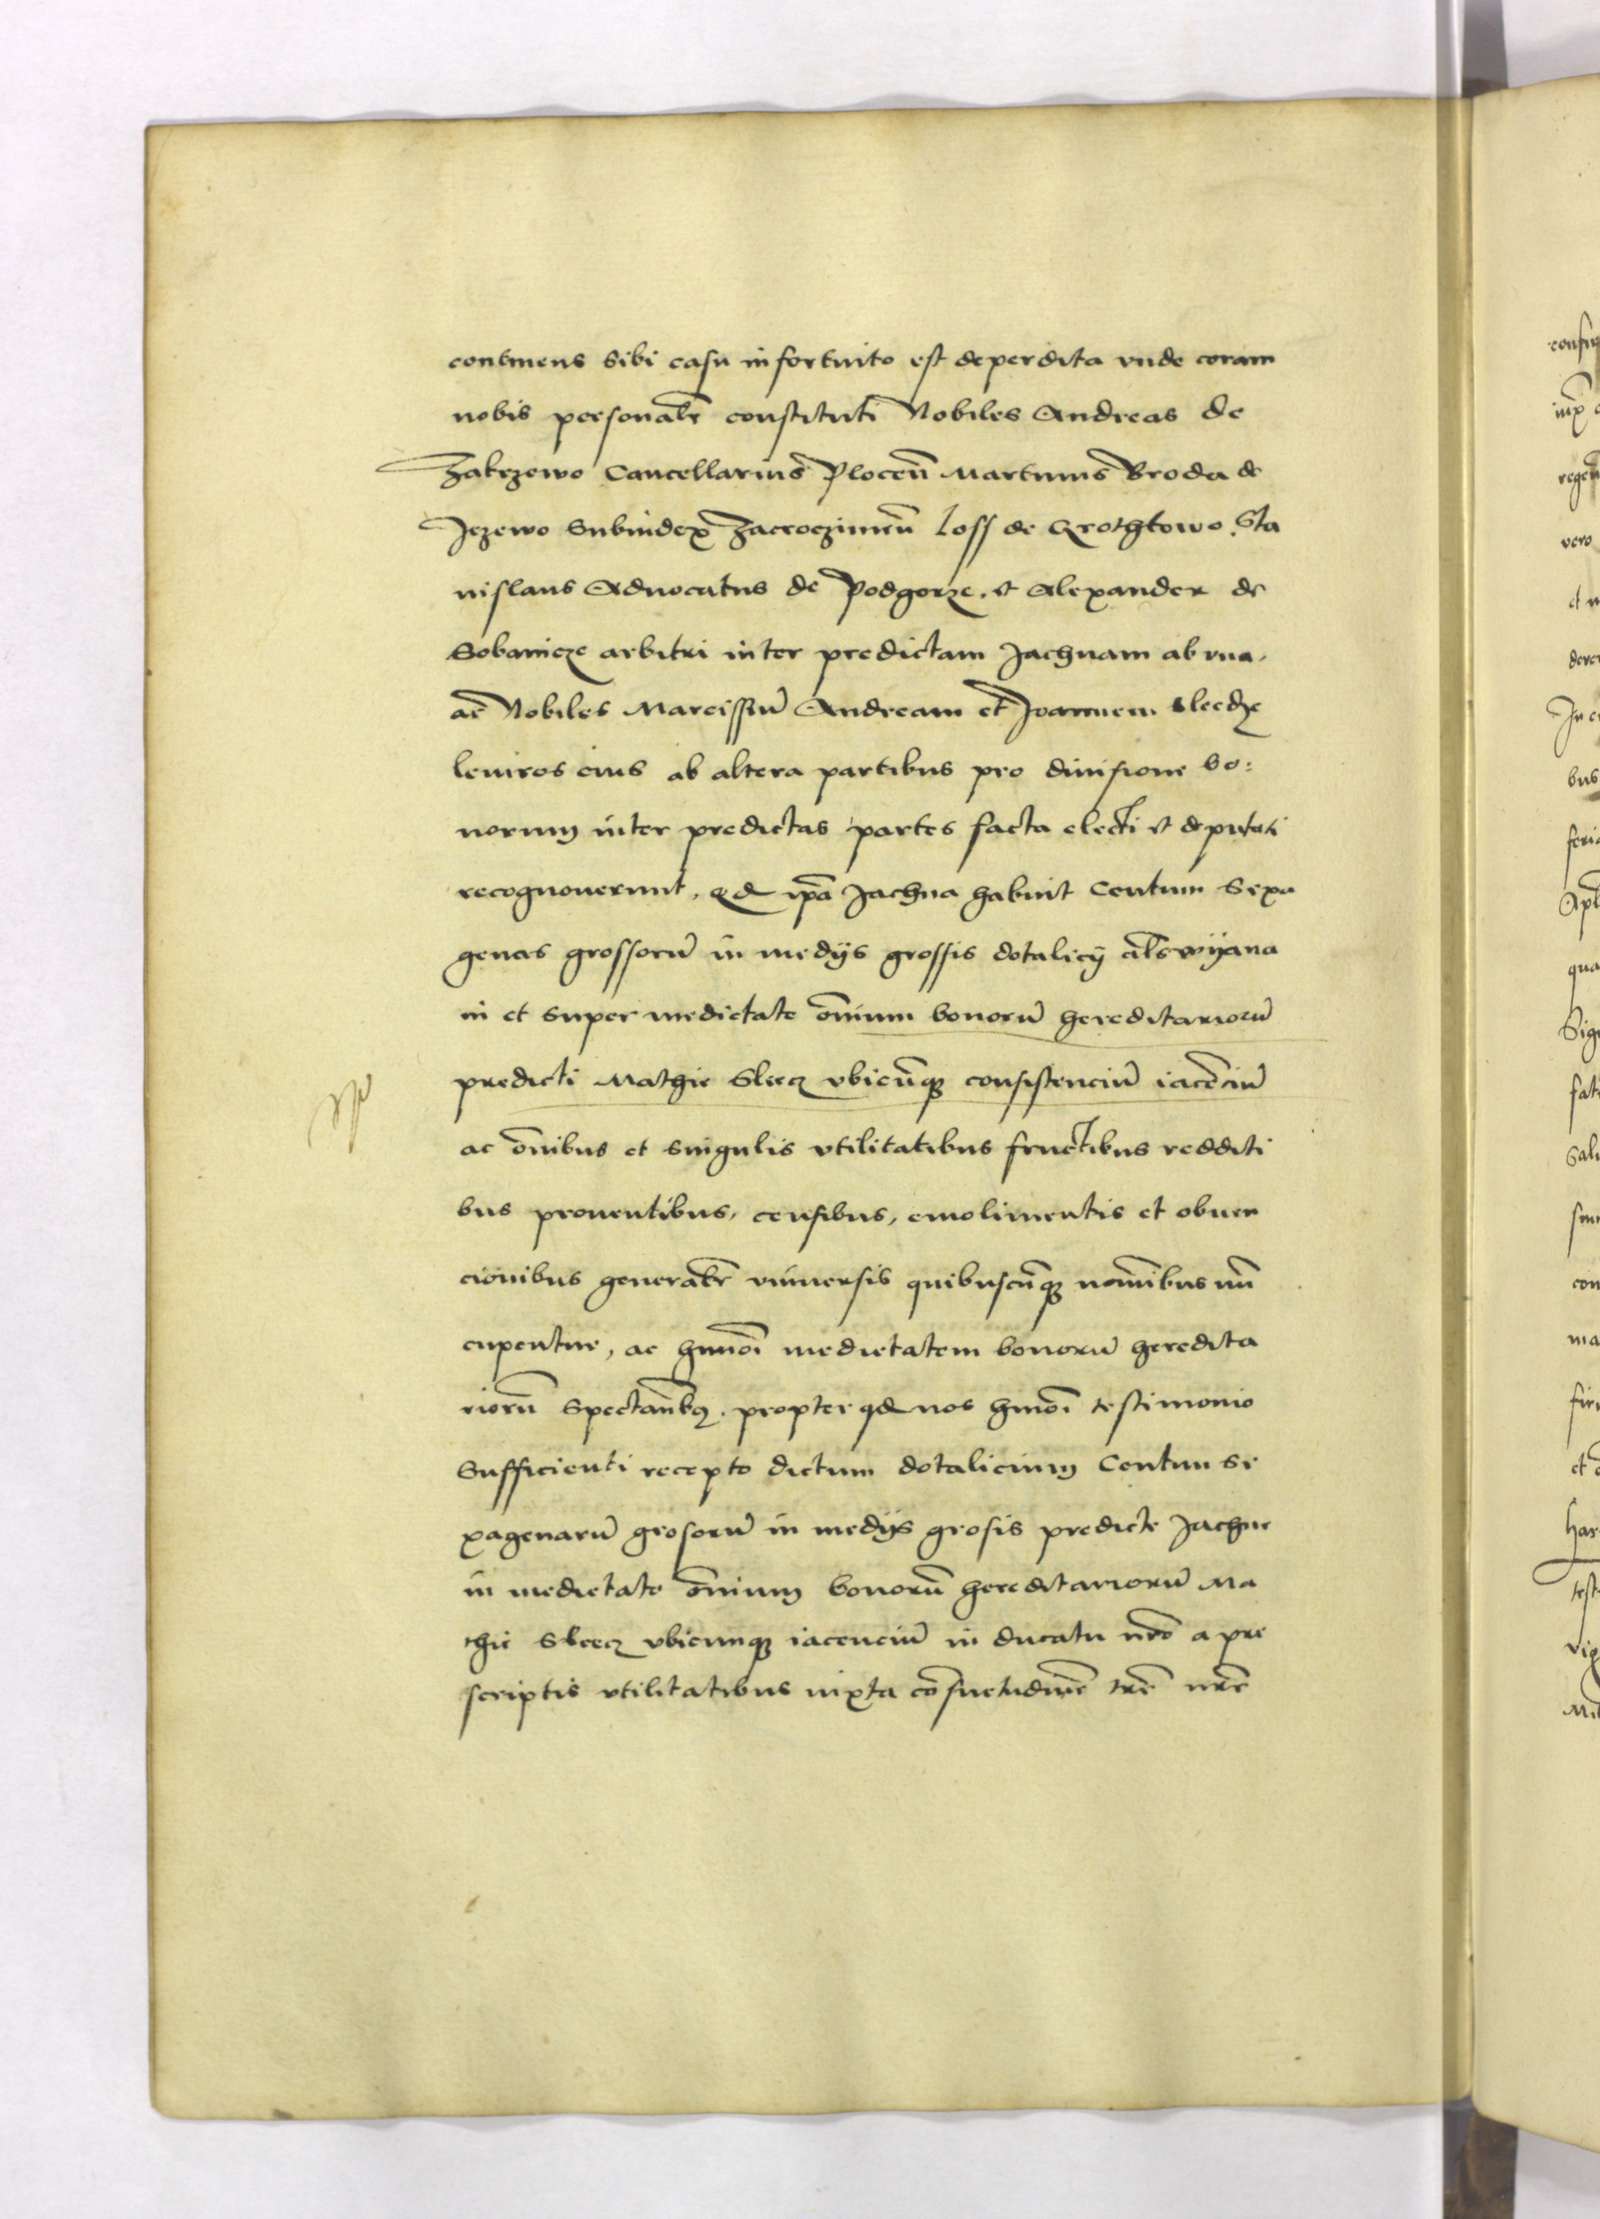 continens sibi casu infortuito est deperdita vnde coram
nobis personalr̄ constituti Nobiles Andreas de
Zakrzewo Cancellarius Plocen̄ Martinus Broda de
Jezewo Subiudex Zacroczimen̄ Loss de Grothkowo Sta
nislaus Aduocatus de Podgorze. et Alexander de
Sobanicze arbitri inter predictam Jachnam ab vna.
ac Nobiles Marcissiū Andream et Joannem Sleedze
leuiros eius ab altera partibus pro diuisione bo:
norum inter predictas partes facta electi et deputati
recognouerunt, qd ip̄a Jachna habuit Centum Sexa
genas grossorū in medys grossis dotalicy al̄s wyana
in et super medietate om̄nium bonorū hereditariorū
predicti Mathie Sleecz vbicūq; consistenciū iacēciū
ac om̄ibus et singulis vtilitatibus fructibus redditi
bus prouentibus, censibus, emolimentis et obuen
cionibus generalr̄ vniuersis quibuscūq; nomīnibus nūn
cupentur, ac hmōi medietatem bonorū heredita
riorū spectan̄tibq. propter qd nos hmōi testimonio
sufficienti recepto dictum dotalicium Centum Se
xagenarū grosorū in medys grosis predicte Jachne
in medietate om̄nium bonorū hereditariorū Ma
thie Sleecz vbicunq; iacenciū in ducatu nr̄o a pre
scriptis vtilitatibus iuxta cōsuetudinē trē nrē